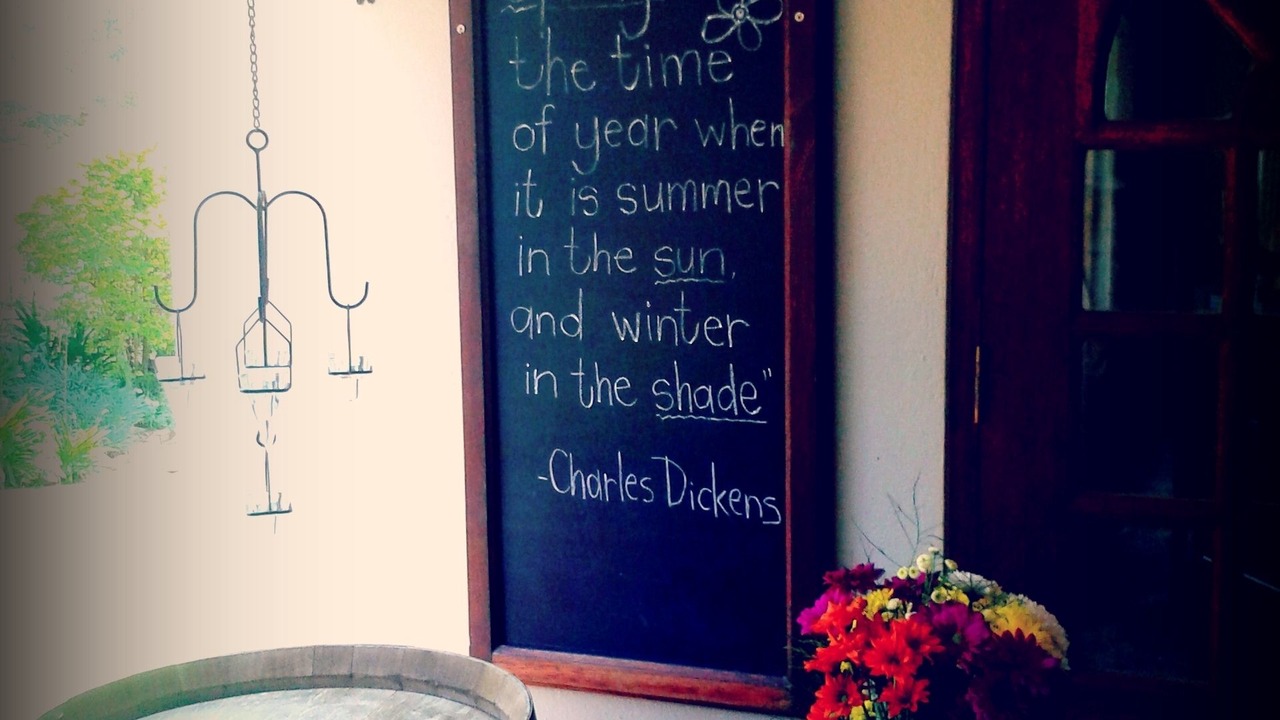 the time
of year when
it is summer
in the sun,
and winter
in the shade"
-Charles Dickens